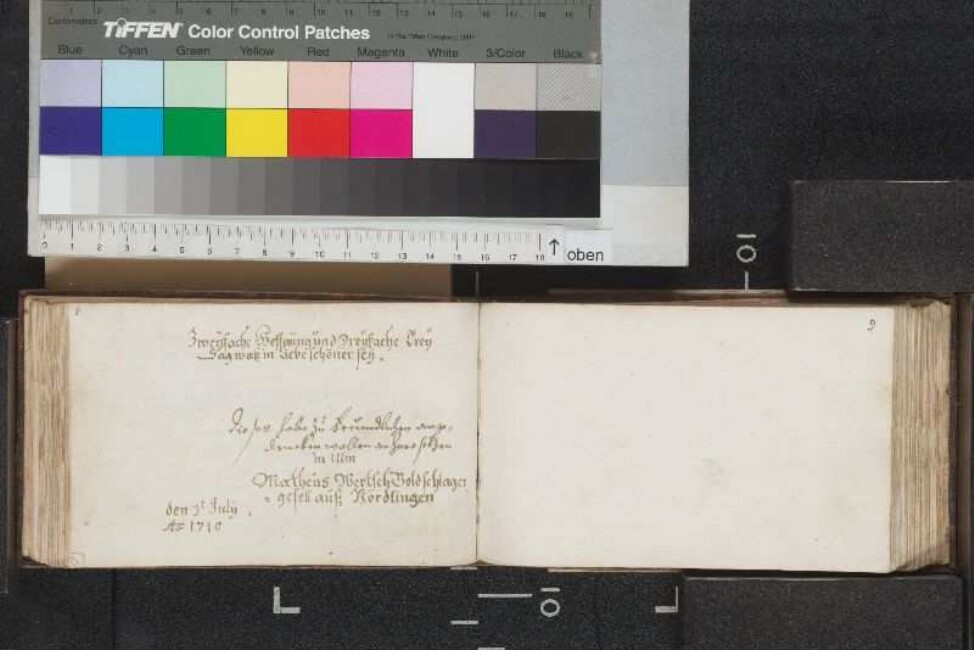 Centimetres
TIFFEN Color Control Patches
Blue Cyan Green Yellow Red Magenta White 3/Color Black
0 1 2 3 4 5 6 7 8 9 10 11 12 13 14 15 16 17 18
↑ oben
9
Zweyfache Hoffnung und Dreyfache Trey
Sag waß in
schöner sey.
Dieses habe zu freundlichen ange-
dencken wollen
in Ulm
Matheus Goldschlager
gesell auß Nördlingen
den 31 July
Aō 1710